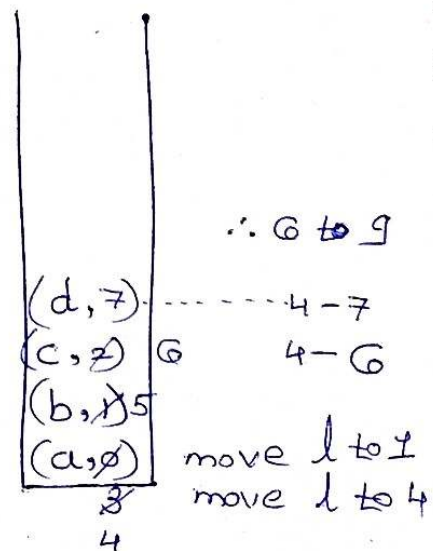 ∴ 6 to 9
(d, 7) ------- 4 - 7
(c, 2) 6 4 - 6
(b, 1) 5
(a, 0) move l to 1
3 move l to 4
4